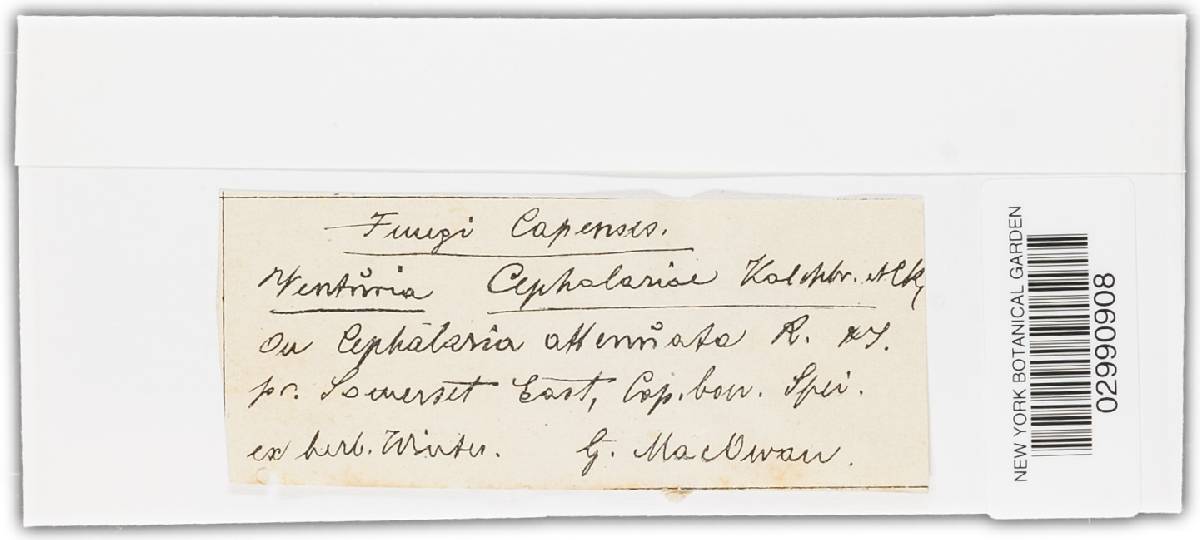 Fungi Capensis.
Ventúria Cephalariae Kalchbr. et Ck,
On Cephalaria attenŭata R. & S.
pr. Somerset East, Cap. bon. Spei.
ex herb. Winter. G. MacOwan.
NEW YORK BOTANICAL GARDEN
02990908